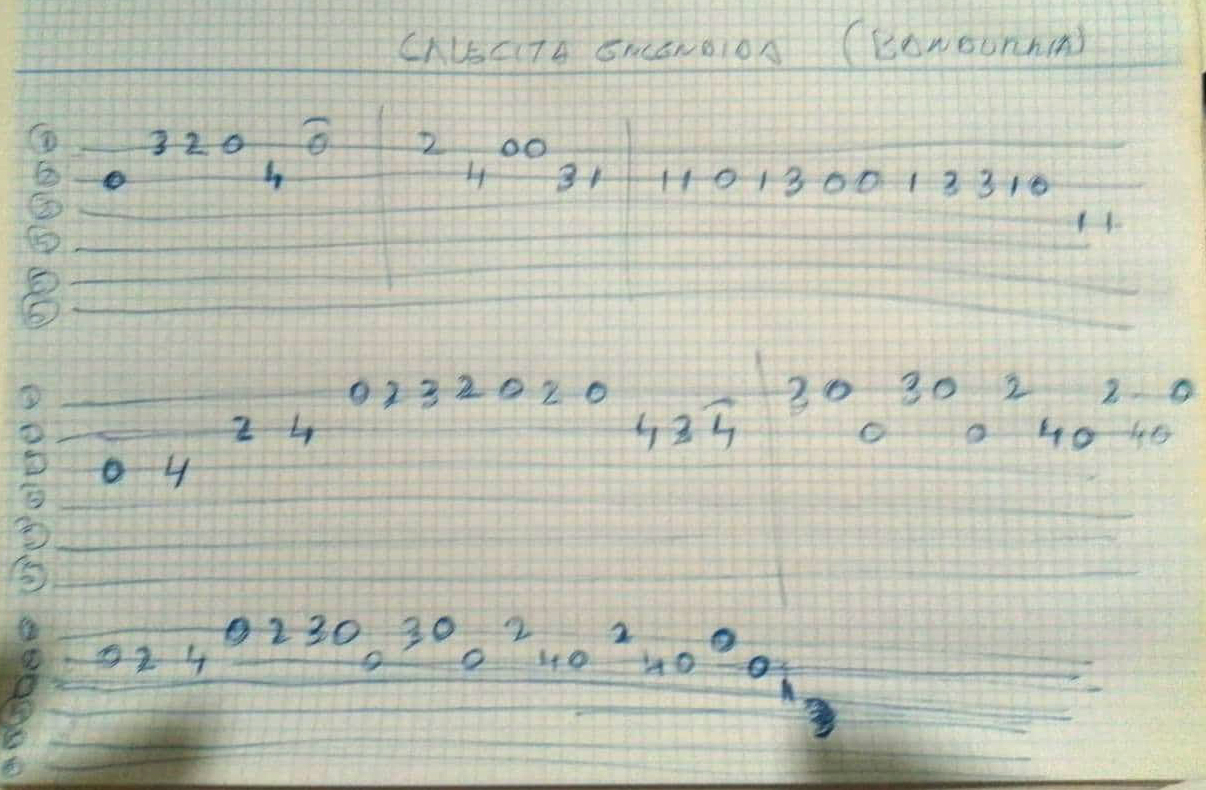 CALECITA ENCENDIDA (BANDURRIA)
3 2 0 0 2 0 0
0 4 4 3 1 1 1 0 1 3 0 0 1 3 3 1 0
1 1
0 2 3 2 0 2 0 3 0 3 0 2 2 0
2 4 4 3 4 0 0 4 0 4 0
0 4
0 2 3 0 3 0 2 2 0
0 2 4 0 0 4 0 4 0 0